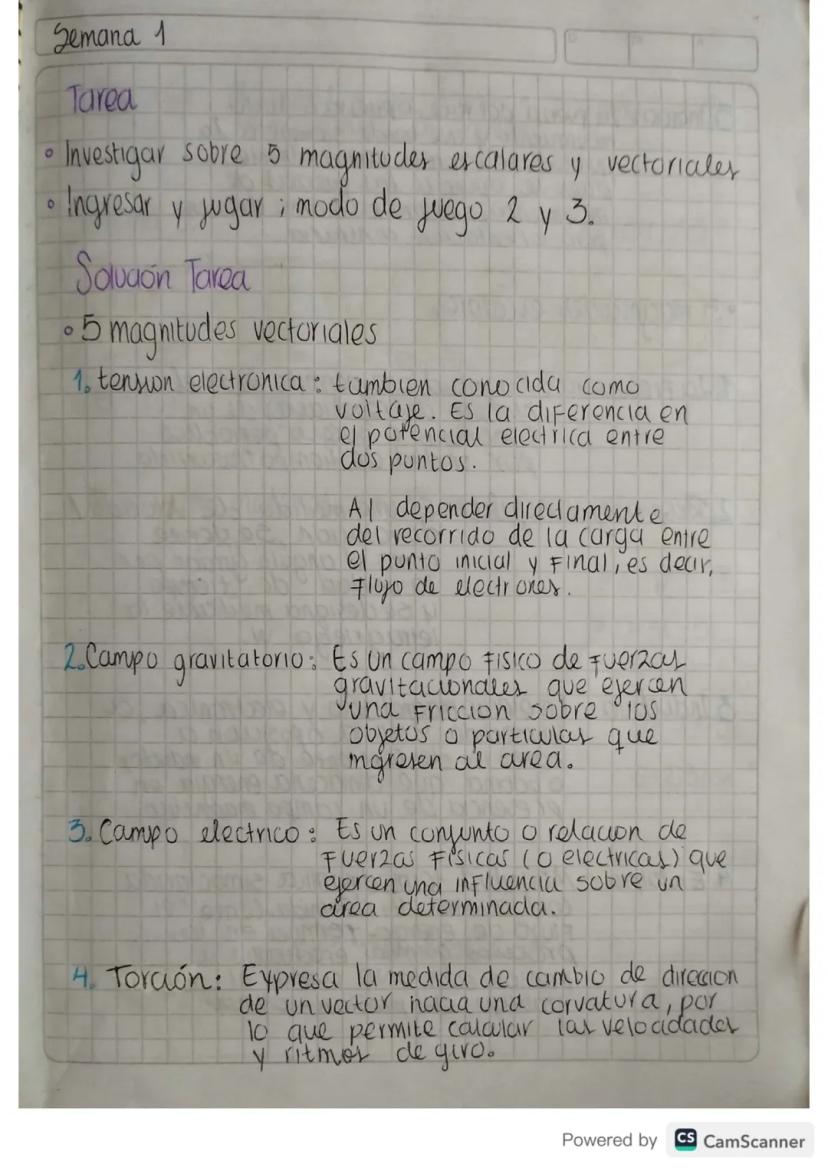 Semana 1
Tarea
• Investigar sobre 5 magnitudes escalares y vectoriales
• Ingresar y jugar ; modo de juego 2 y 3.
Solución Tarea
• 5 magnitudes vectoriales
1. tension electronica : tambien conocida como
voltaje. Es la diferencia en
el potencial electrica entre
dos puntos.
Al depender directamente
del recorrido de la carga entre
el punto inicial y Final, es decir,
Flujo de electrones.
2. Campo gravitatorio : Es un campo Fisico de Fuerzas
gravitacionales que ejercen
una Friccion sobre los
objetos o particulas que
ingresen al area.
3. Campo electrico : Es un conjunto o relacion de
Fuerzas Fisicas (o electricas) que
ejercen una influencia sobre un
área determinada.
4. Torción : Expresa la medida de cambio de direccion
de un vector hacia una corvatura, por
lo que permite calcular las velocidades
y ritmos de giro.
Powered by CS CamScanner